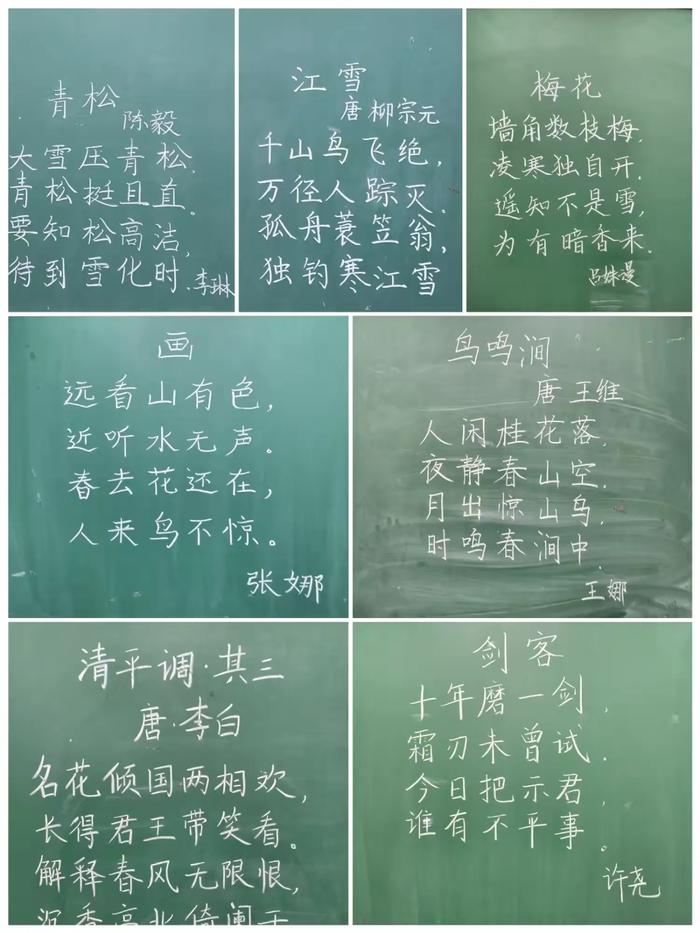 青松
陈毅
大雪压青松.
青松挺且直.
要知松高洁,
待到雪化时.
李琳
江雪
唐 柳宗元
千山鸟飞绝,
万径人踪灭.
孤舟蓑笠翁,
独钓寒江雪
梅花
墙角数枝梅,
凌寒独自开.
遥知不是雪,
为有暗香来.
吕姝曼
画
远看山有色,
近听水无声。
春去花还在,
人来鸟不惊。
张娜
鸟鸣涧
唐 王维
人闲桂花落.
夜静春山空.
月出惊山鸟.
时鸣春涧中.
王娜
清平调·其三
唐·李白
名花倾国两相欢,
长得君王带笑看。
解释春风无限恨,
沉香亭北倚阑干
剑客
十年磨一剑,
霜刃未曾试.
今日把示君,
谁有不平事。
许尧